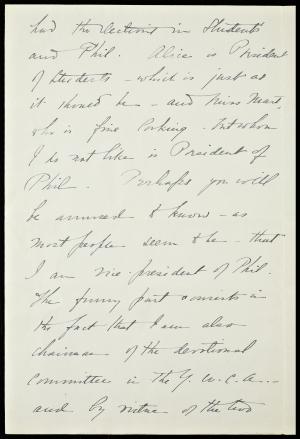 had the elections in Students
and Phil. Alice is President
of Students - which is just as
it should be - and Miss
who is fine looking - but whom
I do not like is President of
Phil. Perhaps you will
be amused to know - as
most people seem to be - that
I am vice-president of Phil.
The funny part consists in
the fact that I am also
chairman of the devotional
Committee in the Y.W.C.A. -
and by virtue of the two